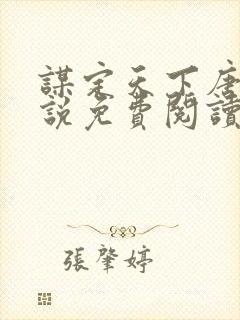 謀定天下唐
說免費閱讀
張肇婷